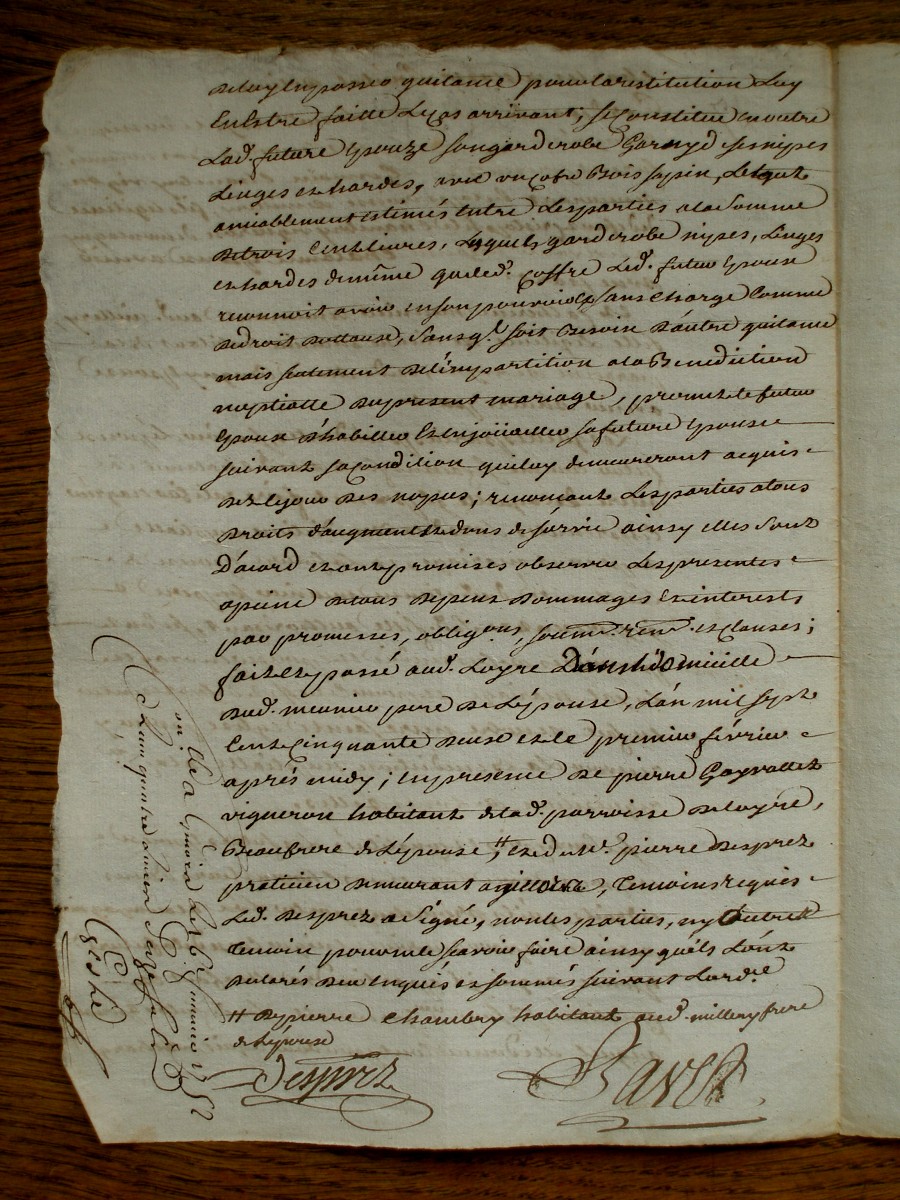 de luy en passer quitance pour la restitution luy
en estre faitte le cas arrivant, se constitue en outre
lad. future Epouze son garderobe Garny de ses nipes
Linges et hardes, avec un cofre Bois sapin, le tout
amiablement estimés entre les parties a la somme
de trois cent livres, lesquels garderobe nipes, Linges
et hardes de même que led. coffre led. futur Epoux
reconnoit avoir en son pouvoir et s'en charge comme
de droit sans q.l soit Besoin d'autre quitance
mais seulement de l'impartition a la Benediction
nuptialle du present mariage, promet le futur
Epoux d'habiller et enjoüailler sa future Epouse
suivant sa condition qui luy demeureront acquis
dez le jour des nopces; renonçant les parties a tous
droits d'augment et dons de survie ainsy elles sont
d'acord et ont promises observer les presentes
a peine de tous depens dommages et interests
par promesses, obligons, soumi.ns ren.ons et clauses;
fait et passé aud. Loyre Dans le domicille
dud. meunier pere de l'épouse, l'an mil sept
cent cinquante deux et le premier février
aprés midy; en presence de pierre Gayvallet
vigneron habitant de lad. parroisse de Loyre,
Beaufrere de l'épouse #, et de m.e pierre Desprez
praticien demeurant a, temoins requis
Led. Desprez a signé, non les parties, ny l'autre
temoin pour ne le scavoir faire ainsy quils l'ont
declarés de ce enquis et sommés suivant l'ord.ce
# de pierre Chambry habitant aud. millery frere
de l'épouse
Desprez
Bavet
on. lle a le 1752